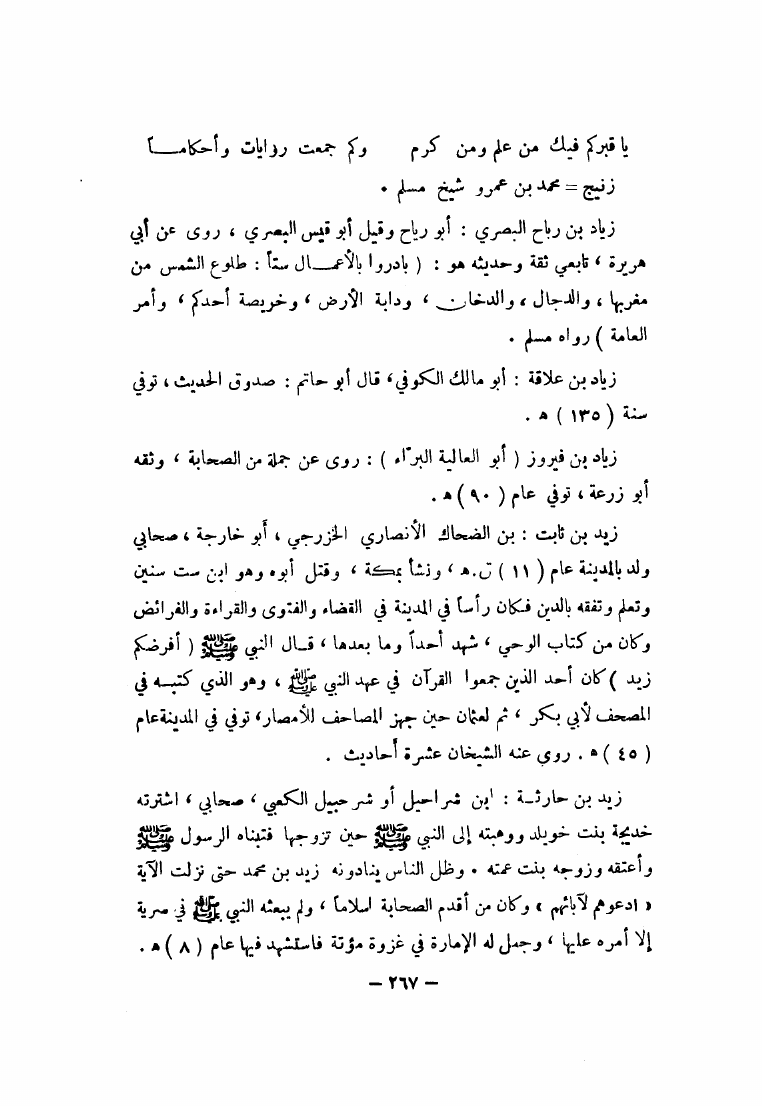 يا قبركم فيك من علم ومن كرم وكم جمعت روايات وأحكامـــاً
زنيج = محمد بن عمرو شيخ مسلم .
زياد بن رباح البصري : أبو رباح وقيل أبو قيس البصري ، روى عن أبي
هريرة ، تابعي ثقة وحديثه هو : ( بادروا بالأعمـــال ستاً : طلوع الشمس من
مغربها ، والدجال ، والدخان ، ودابة الأرض ، وخريصة أحدكم ، وأمر
العامة ) رواه مسلم .
زياد بن علاقة : أبو مالك الكوفي، قال أبو حاتم : صدوق الحديث ، توفي
سنة ( ١٣٥ ) ه .
زياد بن فيروز ( أبو العالية البرّاء ) : روى عن جملة من الصحابة ، وثقه
أبو زرعة ، توفي عام ( ٩٠ ) ه .
زيد بن ثابت : بن الضحاك الأنصاري الخزرجي ، أبو خارجة ، صحابي
ولد بالمدينة عام ( ١١ ) ق.ه ، ونشأ بمكة ، وقتل أبوه وهو ابن ست سنين
وتعلم وتفقه بالدين فكان رأساً في المدينة في القضاء والفتوى والقراءة والفرائض
وكان من كتاب الوحي ، شهد أحداً وما بعدها ، قـال النبي ﷺ ( أفرضكم
زيد ) كان أحد الذين جمعوا القرآن في عهد النبي ﷺ ، وهو الذي كتبـه في
المصحف لأبي بكر ، ثم لعثمان حين جهز المصاحف للأمصار، توفي في المدينة عام
( ٤٥ ) ه . روي عنه الشيخان عشرة أحاديث .
زيد بن حارثـة : ابن شراحيل أو شرحبيل الكعبي ، صحابي ، اشترته
خديجة بنت خويلد ووهبته إلى النبي ﷺ حين تزوجها فتبناه الرسول ﷺ
وأعتقه وزوجه بنت عمته . وظل الناس ينادونه زيد بن محمد حتى نزلت الآية
« ادعوهم لآبائهم » وكان من أقدم الصحابة اسلاماً ، ولم يبعثه النبي ﷺ في سرية
إلا أمره عليها ، وجعل له الإمارة في غزوة مؤتة فاستشهد فيها عام ( ٨ ) ه .
– ٢٦٧ –